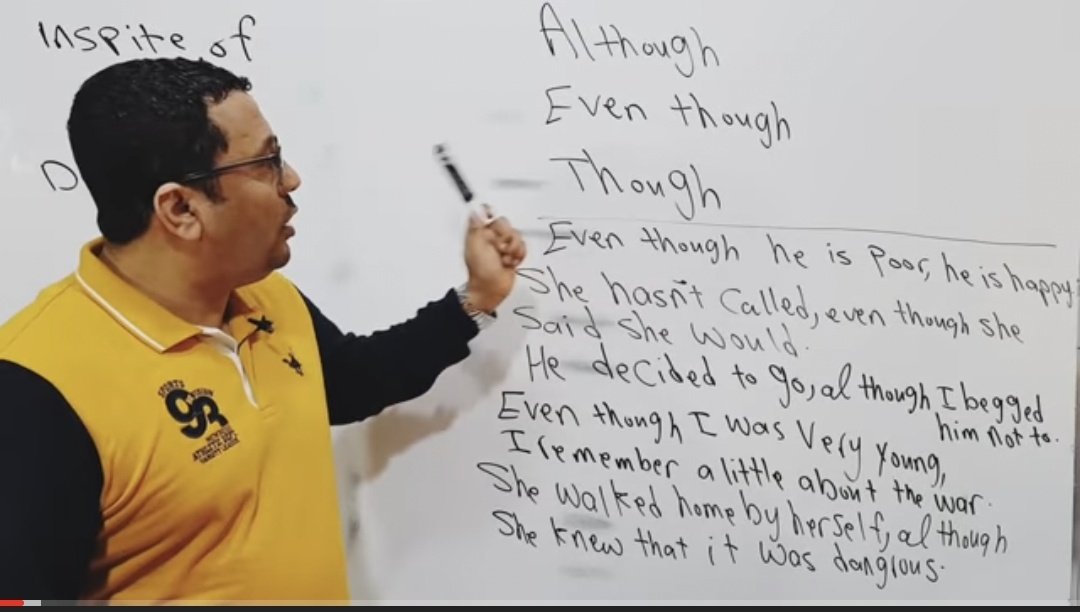 Inspite of
D
Although
Even though
Though
Even though he is poor, he is happy
She hasn't called, even though she
said she would.
He decided to go, although I begged
him not to.
Even though I was very young,
I remember a little about the war.
She walked home by herself, although
she knew that it was dangrous.
SPORTS